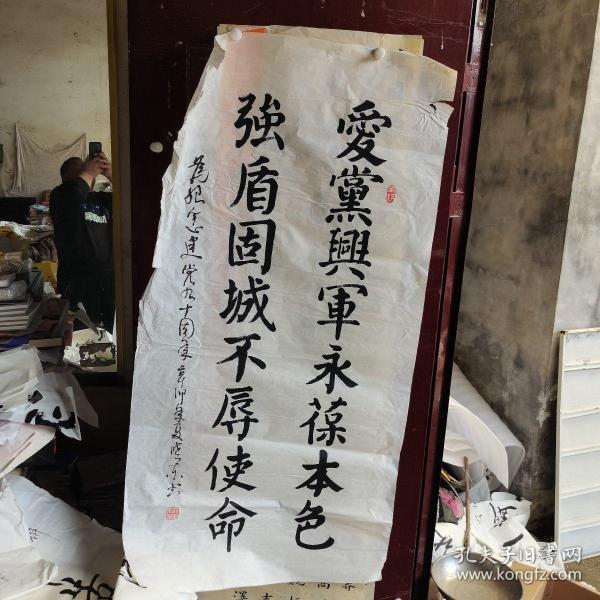 愛黨興軍永葆本色
強盾固城不辱使命
為紀念建党九十周年辛卯年夏
孔夫子旧书网
www.kongfz.com